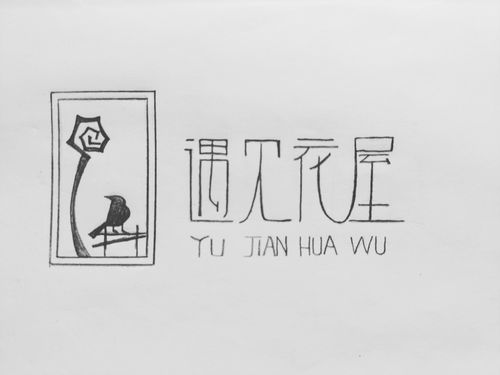 遇见花屋
YU JIAN HUA WU